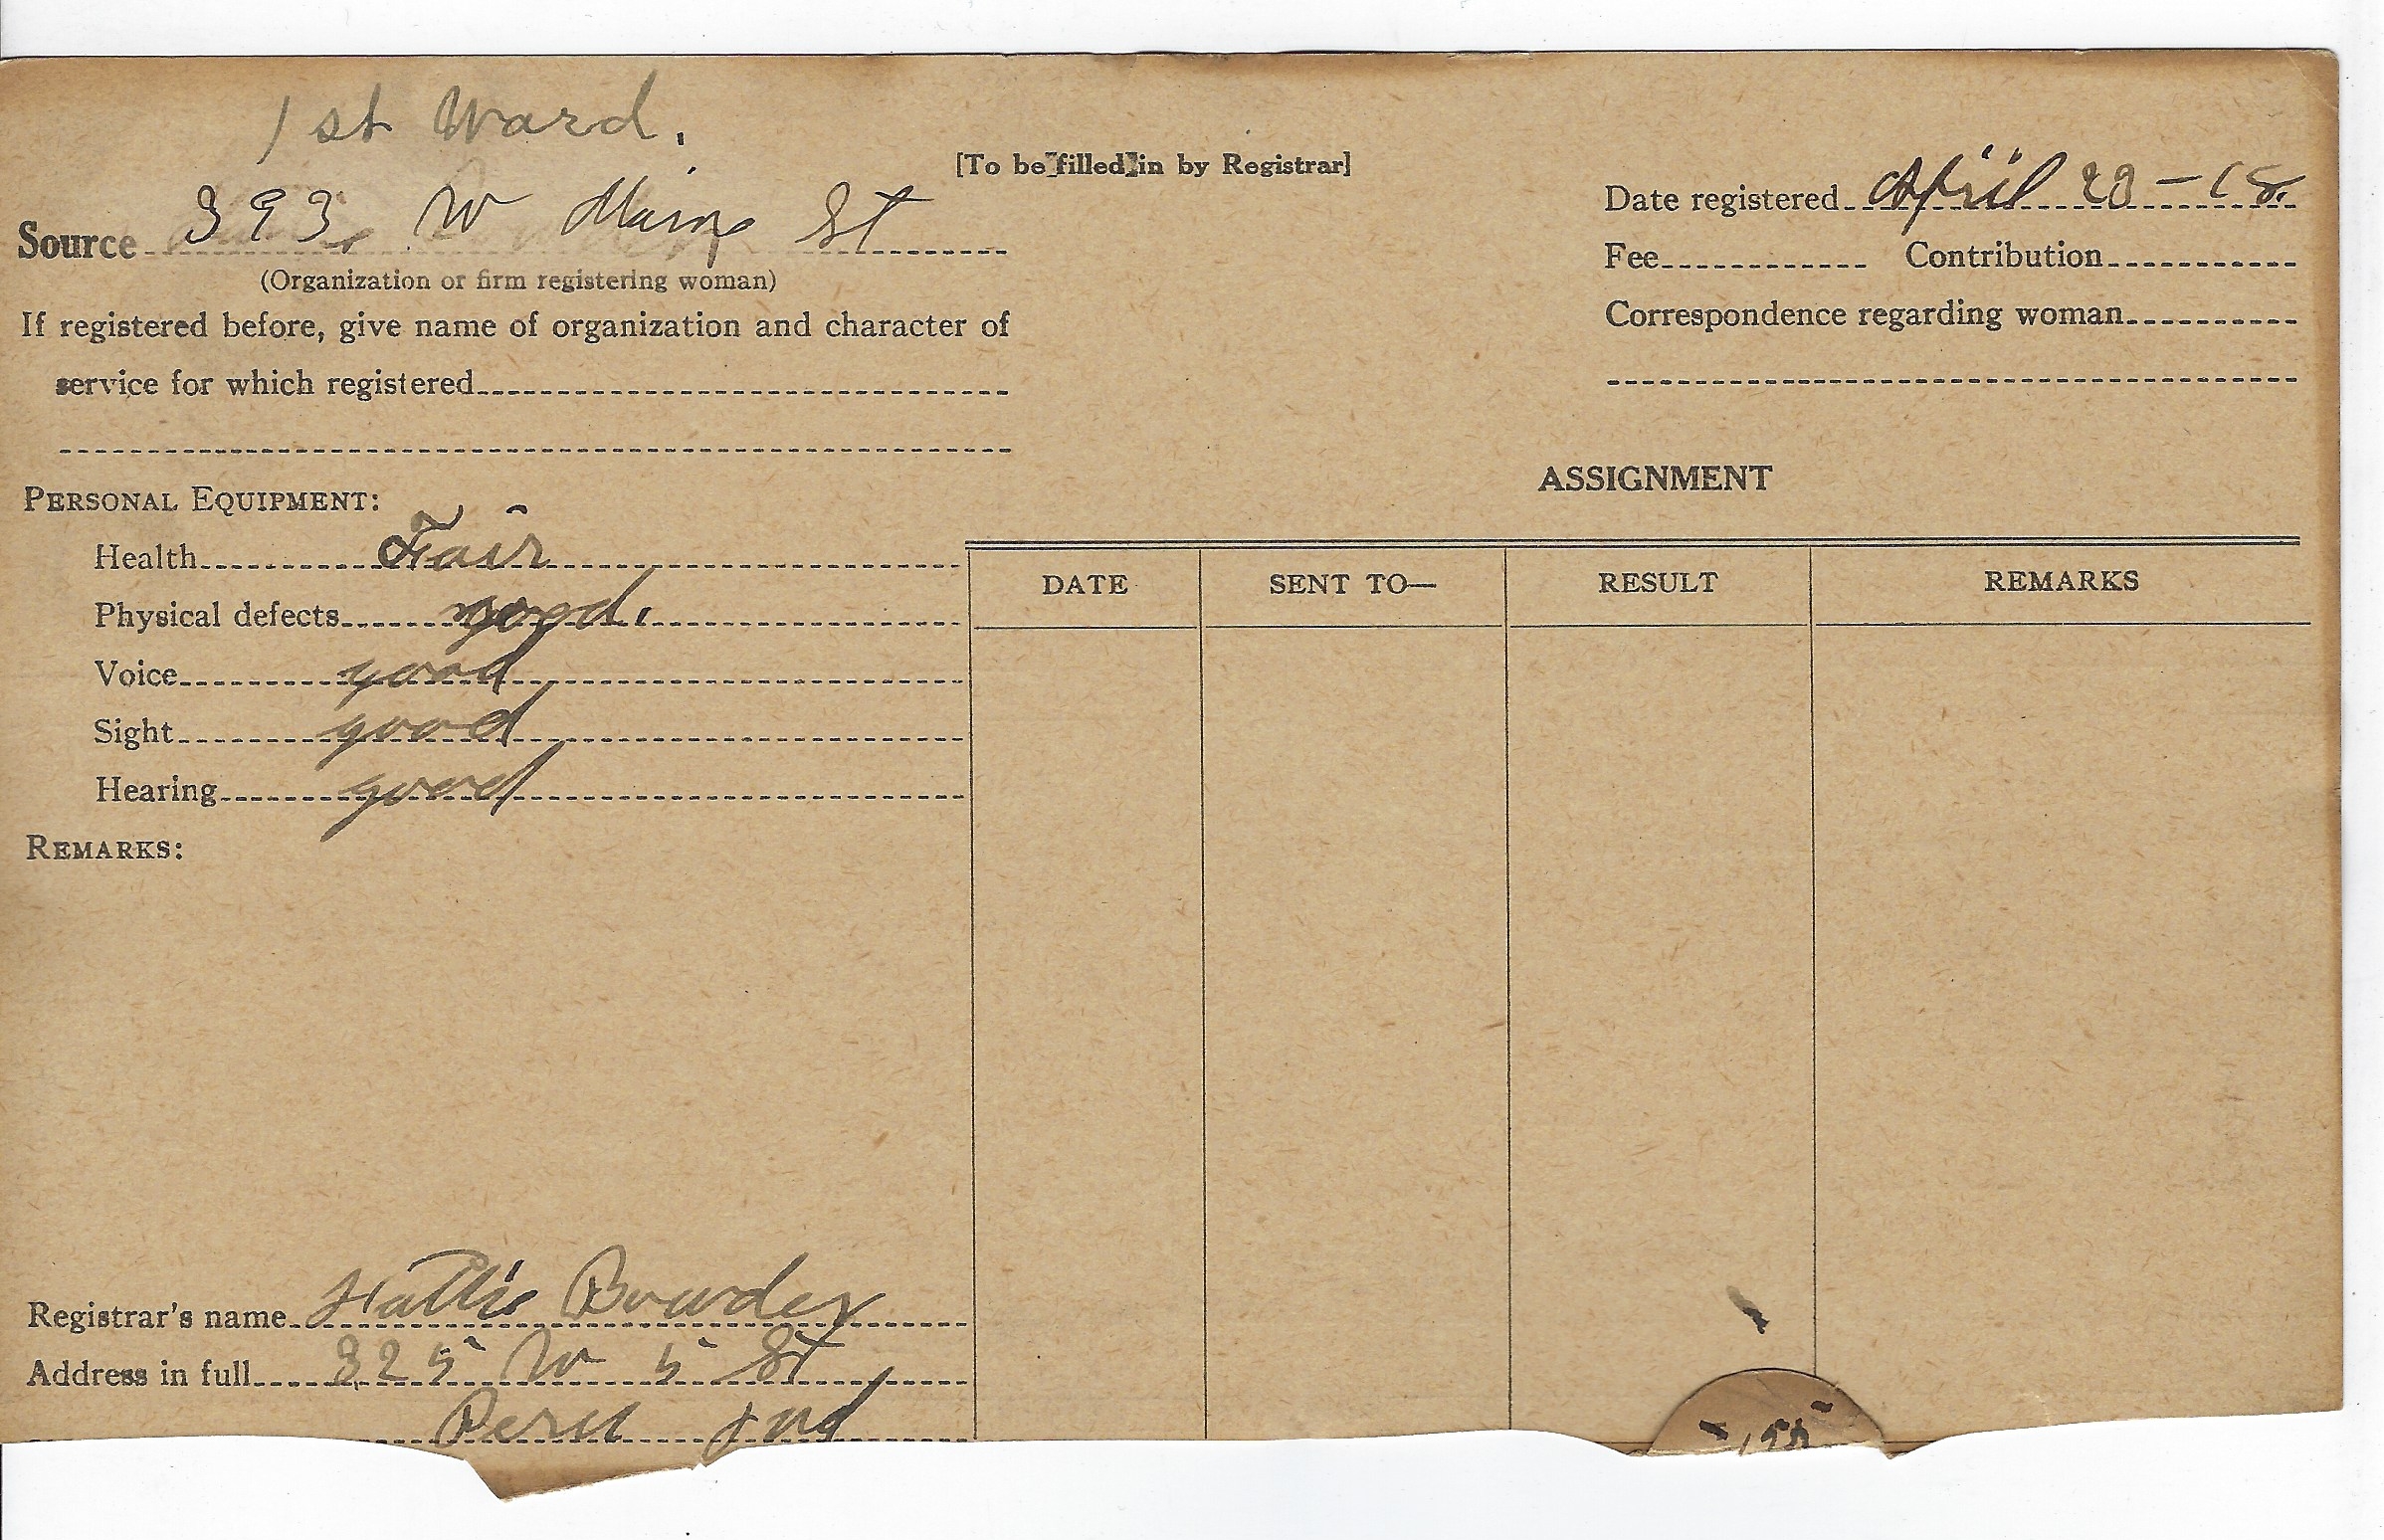 1st Ward.
[To be filled in by Registrar]
Source 393 W Main St
(Organization or firm registering woman)
If registered before, give name of organization and character of
service for which registered
Date registered April 20-18.
Fee Contribution
Correspondence regarding woman
PERSONAL EQUIPMENT:
Health Fair
Physical defects good.
Voice good
Sight good
Hearing good
REMARKS:
ASSIGNMENT
DATE SENT TO— RESULT REMARKS
Registrar's name Hattie
Address in full 325 W 5 St
Peru Ind